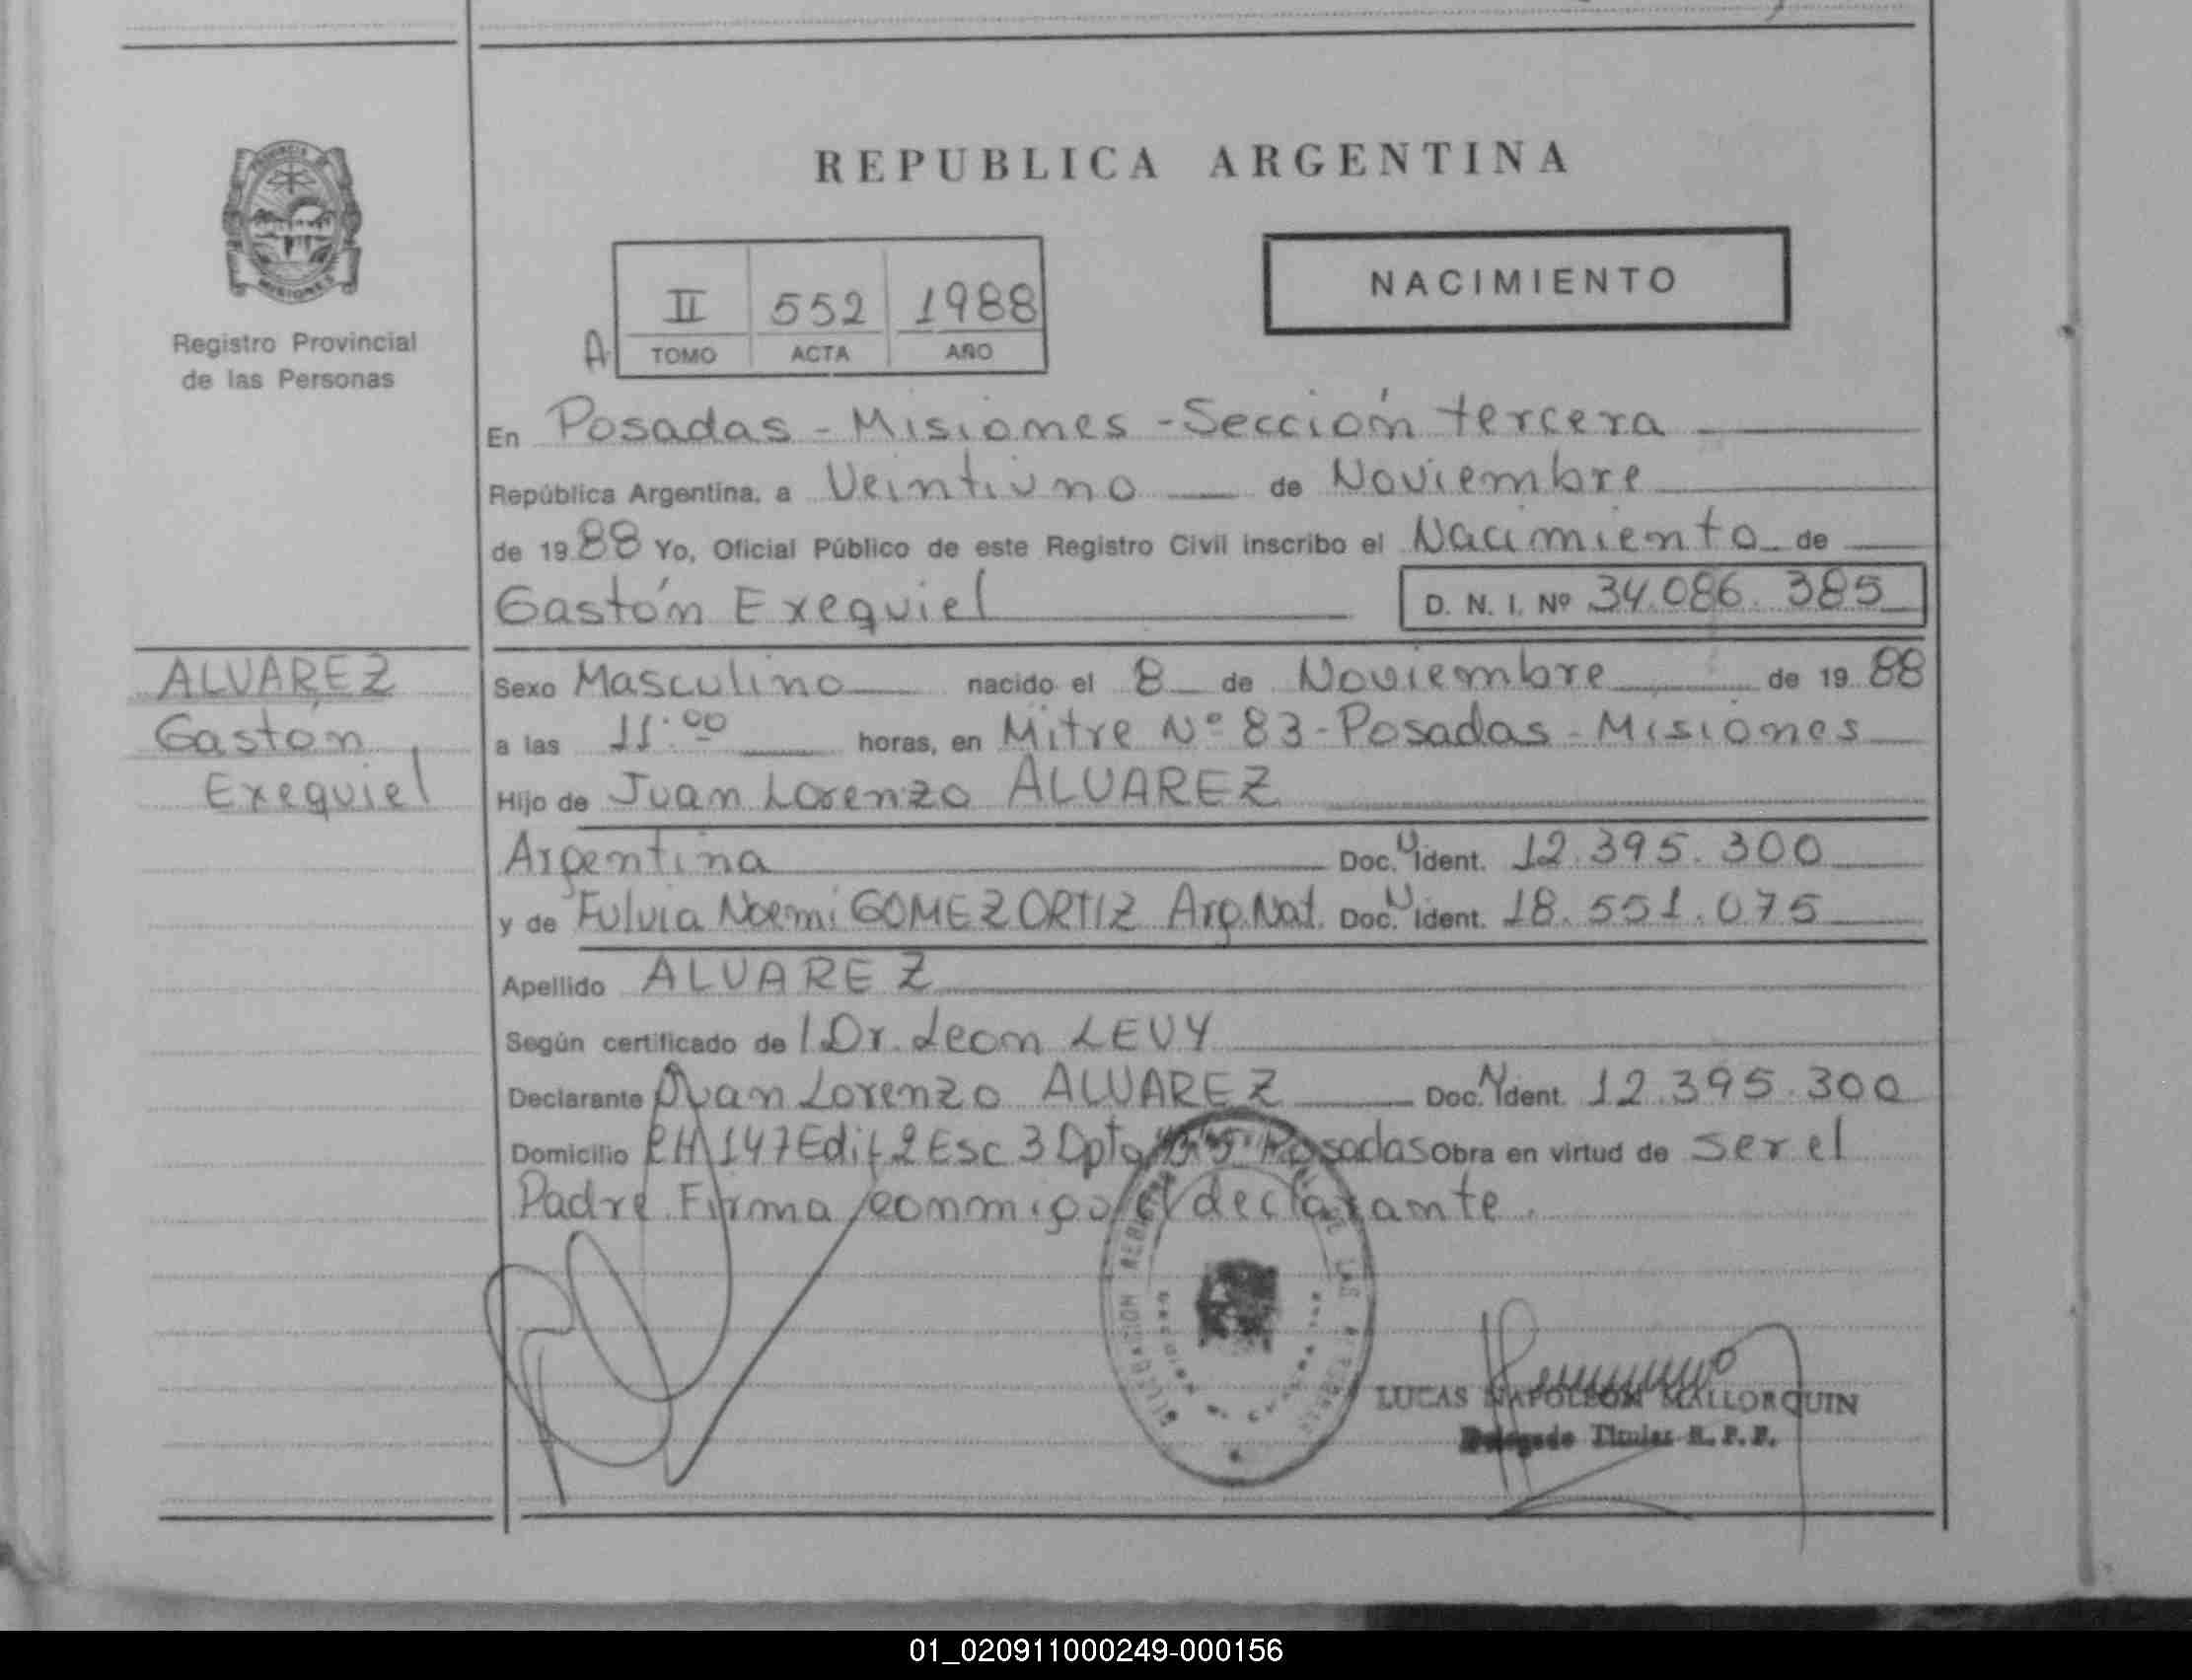 PROVINCIA DE
MISIONES
Registro Provincial
de las Personas
ALVAREZ
Gastón
Exequiel
REPUBLICA ARGENTINA
II 552 1988
A TOMO ACTA AÑO
NACIMIENTO
En Posadas - Misiones - Sección tercera
República Argentina, a Veintiuno de Noviembre
de 1988 Yo, Oficial Público de este Registro Civil inscribo el Nacimiento de
Gastón Exequiel D. N. I. Nº 34.086.385
Sexo Masculino nacido el 8 de Noviembre de 1988
a las 11:00 horas, en Mitre Nº 83 - Posadas - Misiones
Hijo de Juan Lorenzo ALVAREZ
Argentina Doc. Ident. 12.395.300
y de Fulvia Noemi GOMEZ ORTIZ Arg. Nat. Doc. Ident. 18.551.075
Apellido ALVAREZ
Según certificado de l Dr. Leon LEVY
Declarante Juan Lorenzo ALVAREZ Doc. Ident. 12.395.300
Domicilio CH 147 Edif 2 Esc 3 Dpto Posadas Obra en virtud de ser el
Padre. Firma conmigo el declarante.
LUCAS NAPOLEON MALLORQUIN
Delegado Titular R. P. P.
01_020911000249-000156